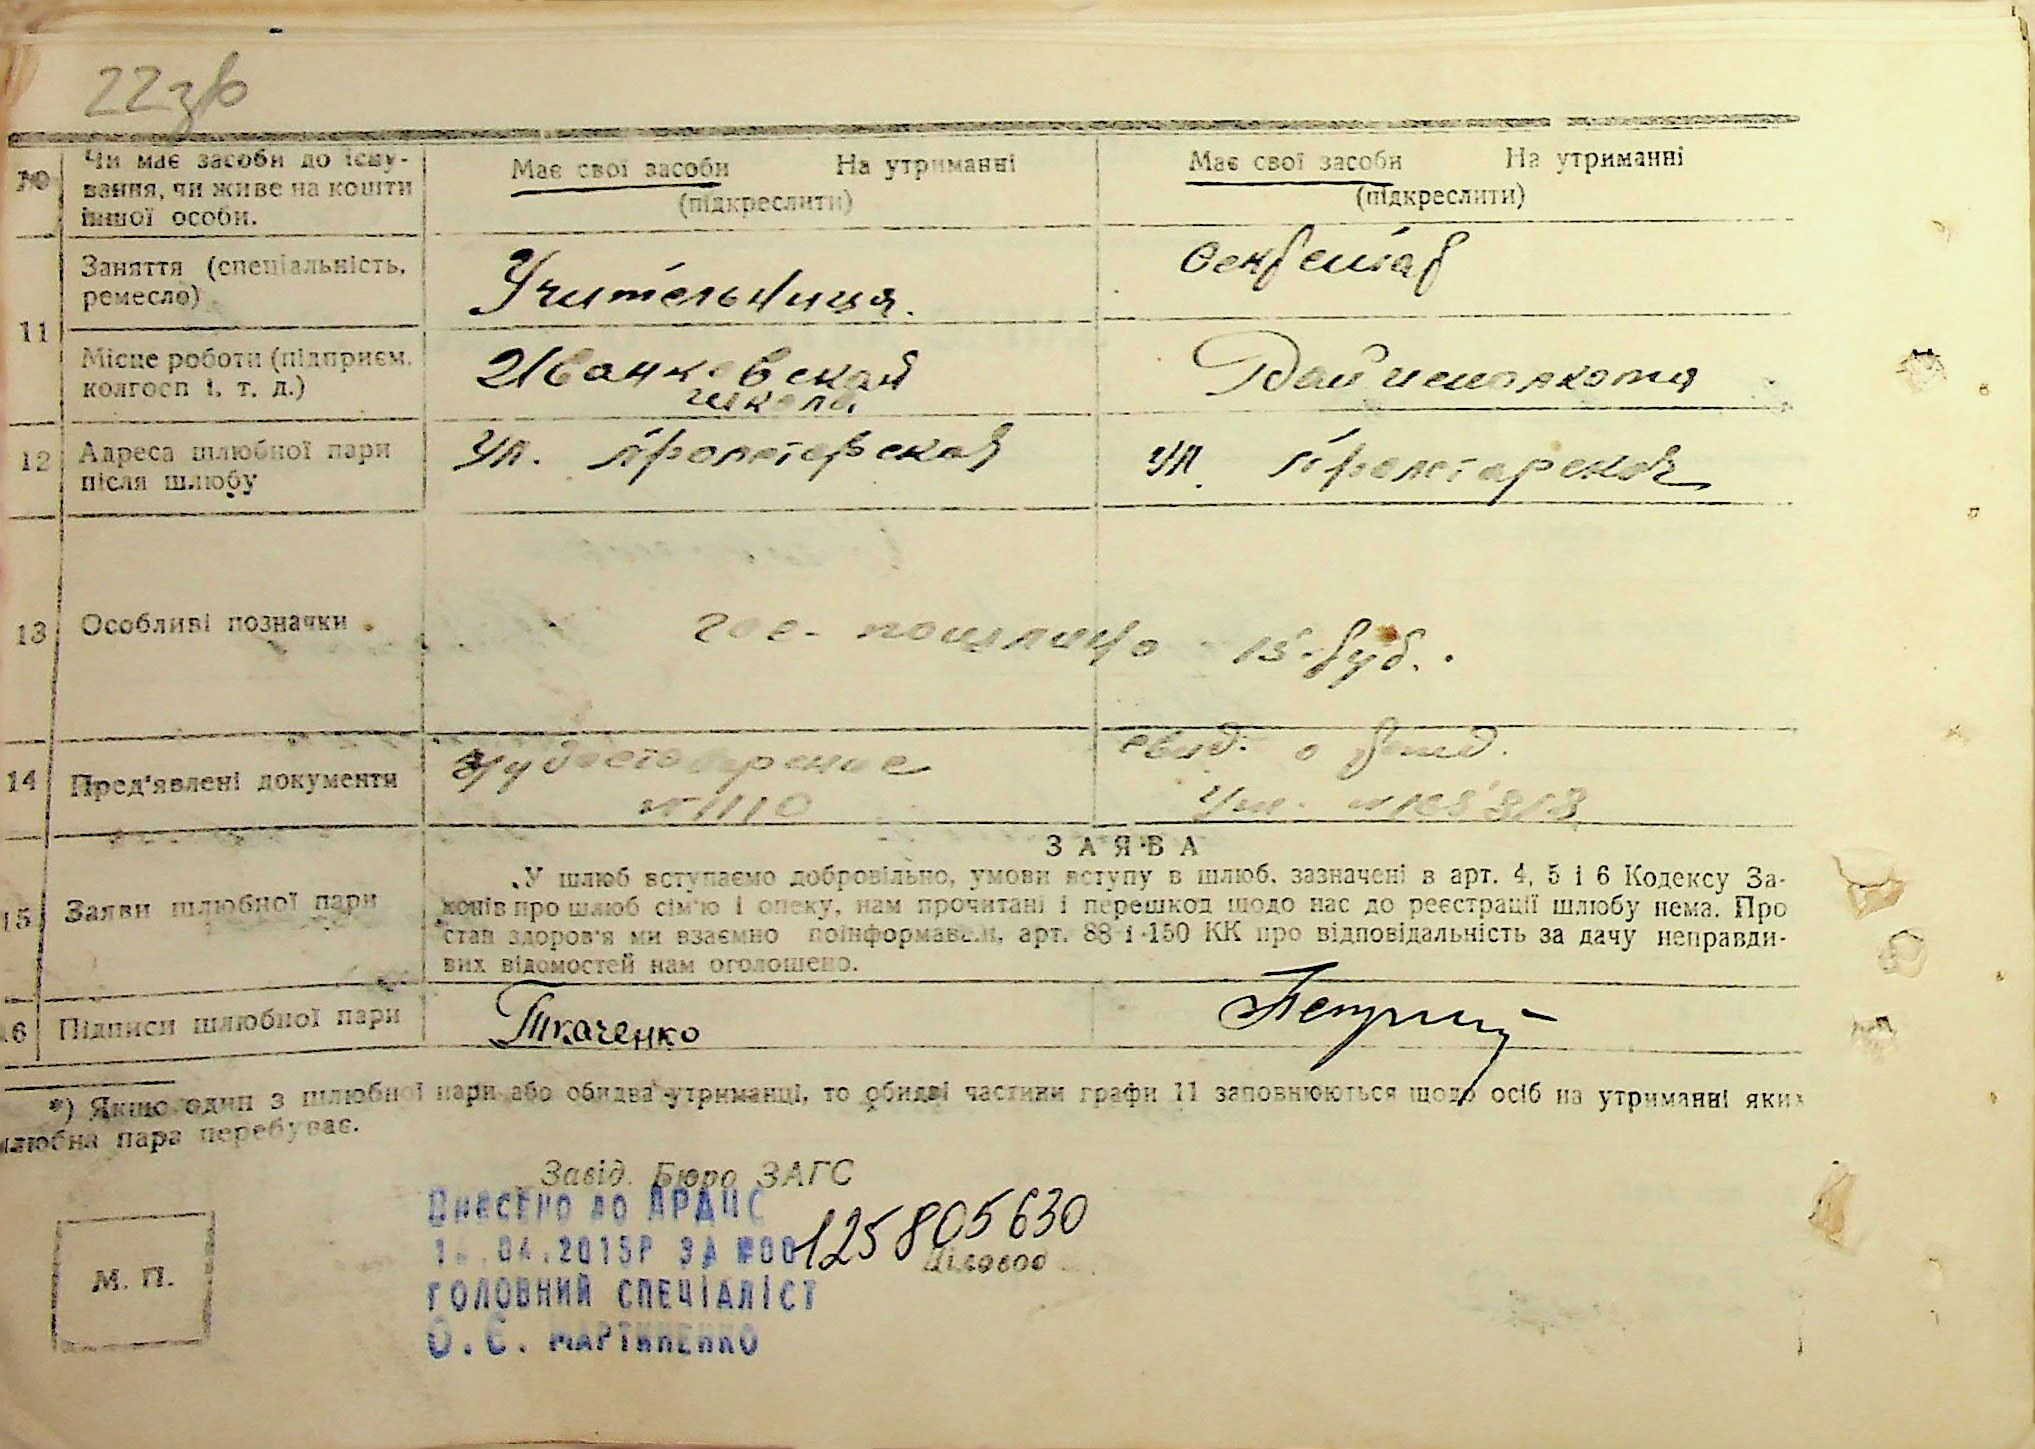 22зв
10 Чи має засоби до існу-
вання, чи живе на кошти
іншої особи.
Має свої засоби На утриманні
(підкреслити)
Має свої засоби На утриманні
(підкреслити)
11 Заняття (спеціальність,
ремесло)
Учительница.
Секретар
Місце роботи (підприєм.
колгосп і. т. д.)
Иванковская
школа
12 Адреса шлюбної пари
після шлюбу
ул. пролетарская
ул. пролетарская
13 Особливі позначки
гос- пошлина 15-руб.
14 Пред'явлені документи
удостоверение
№ 1110
свид. о рожд.
15 Заяви шлюбної пари
ЗАЯВА
У шлюб вступаємо добровільно, умови вступу в шлюб, зазначені в арт. 4, 5 і 6 Кодексу За-
конів про шлюб сім'ю і опеку, нам прочитані і перешкод щодо нас до реєстрації шлюбу нема. Про
стан здоров'я ми взаємно поінформовані, арт. 88 і 150 КК про відповідальність за дачу неправди-
вих відомостей нам оголошено.
16 Підписи шлюбної пари
Ткаченко
*) Якщо один з шлюбної пари або обидва утриманці, то обидві частини графи 11 заповнюються щодо осіб на утриманні яких
шлюбна пара перебуває.
Завід. Бюро ЗАГС
Внесено до ДРАЦС
.04.2015р за №00125805630
Діловод
головний спеціаліст
О.Є. Мартиненко
М. П.